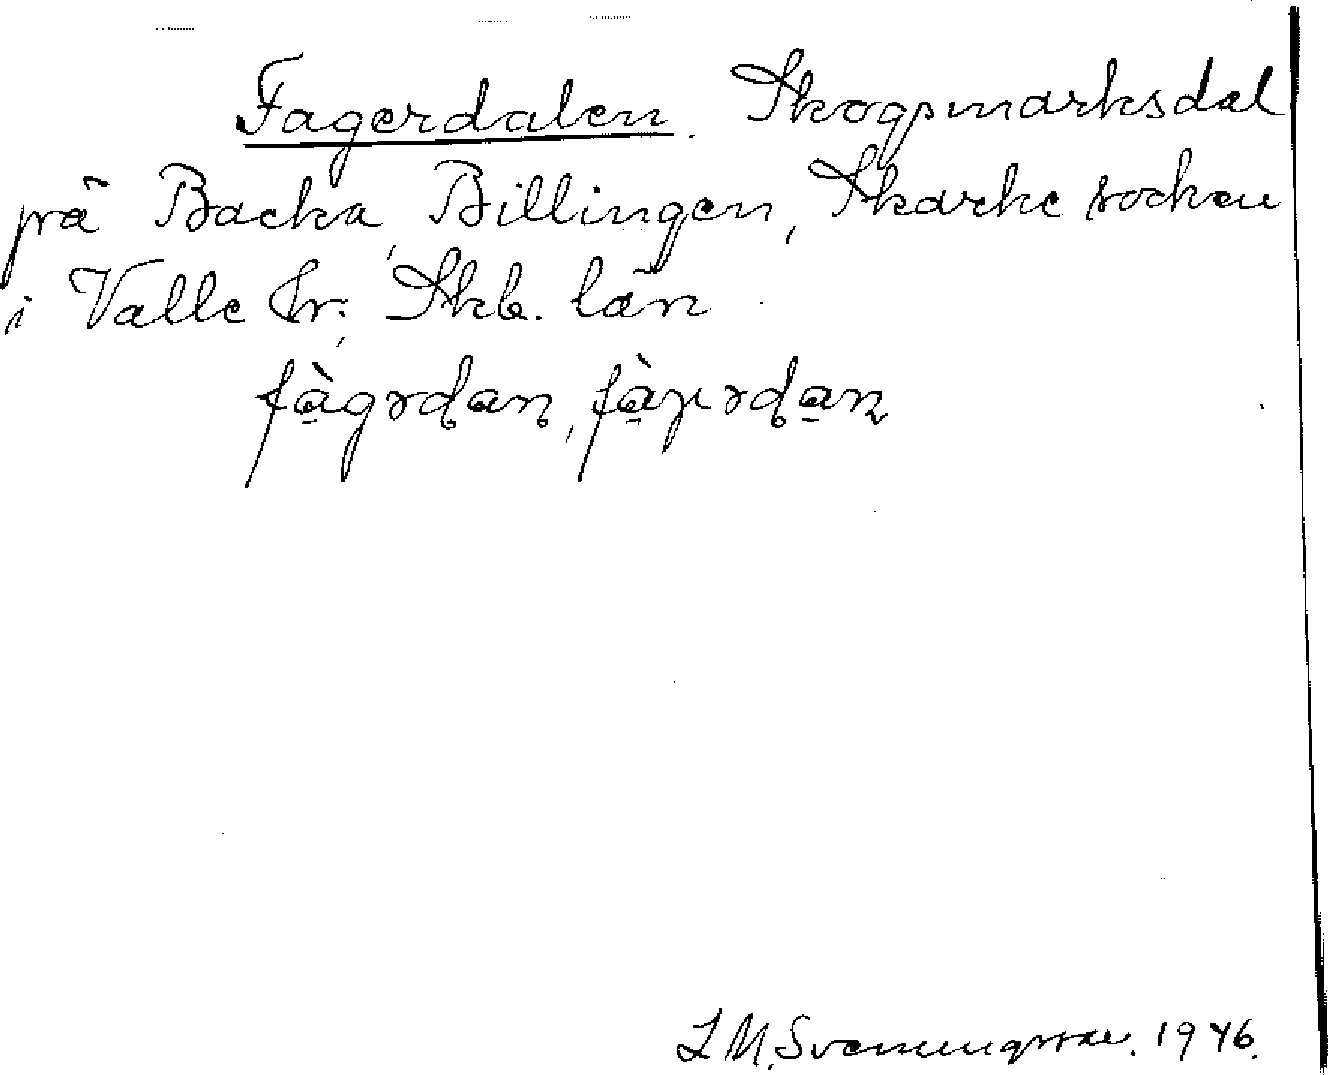 Fagerdalen. Skogsmarksdal
på Backa, Billingen, Skarke socken
i Valle hr; Skb. län
L M. Svenungsson. 1946.